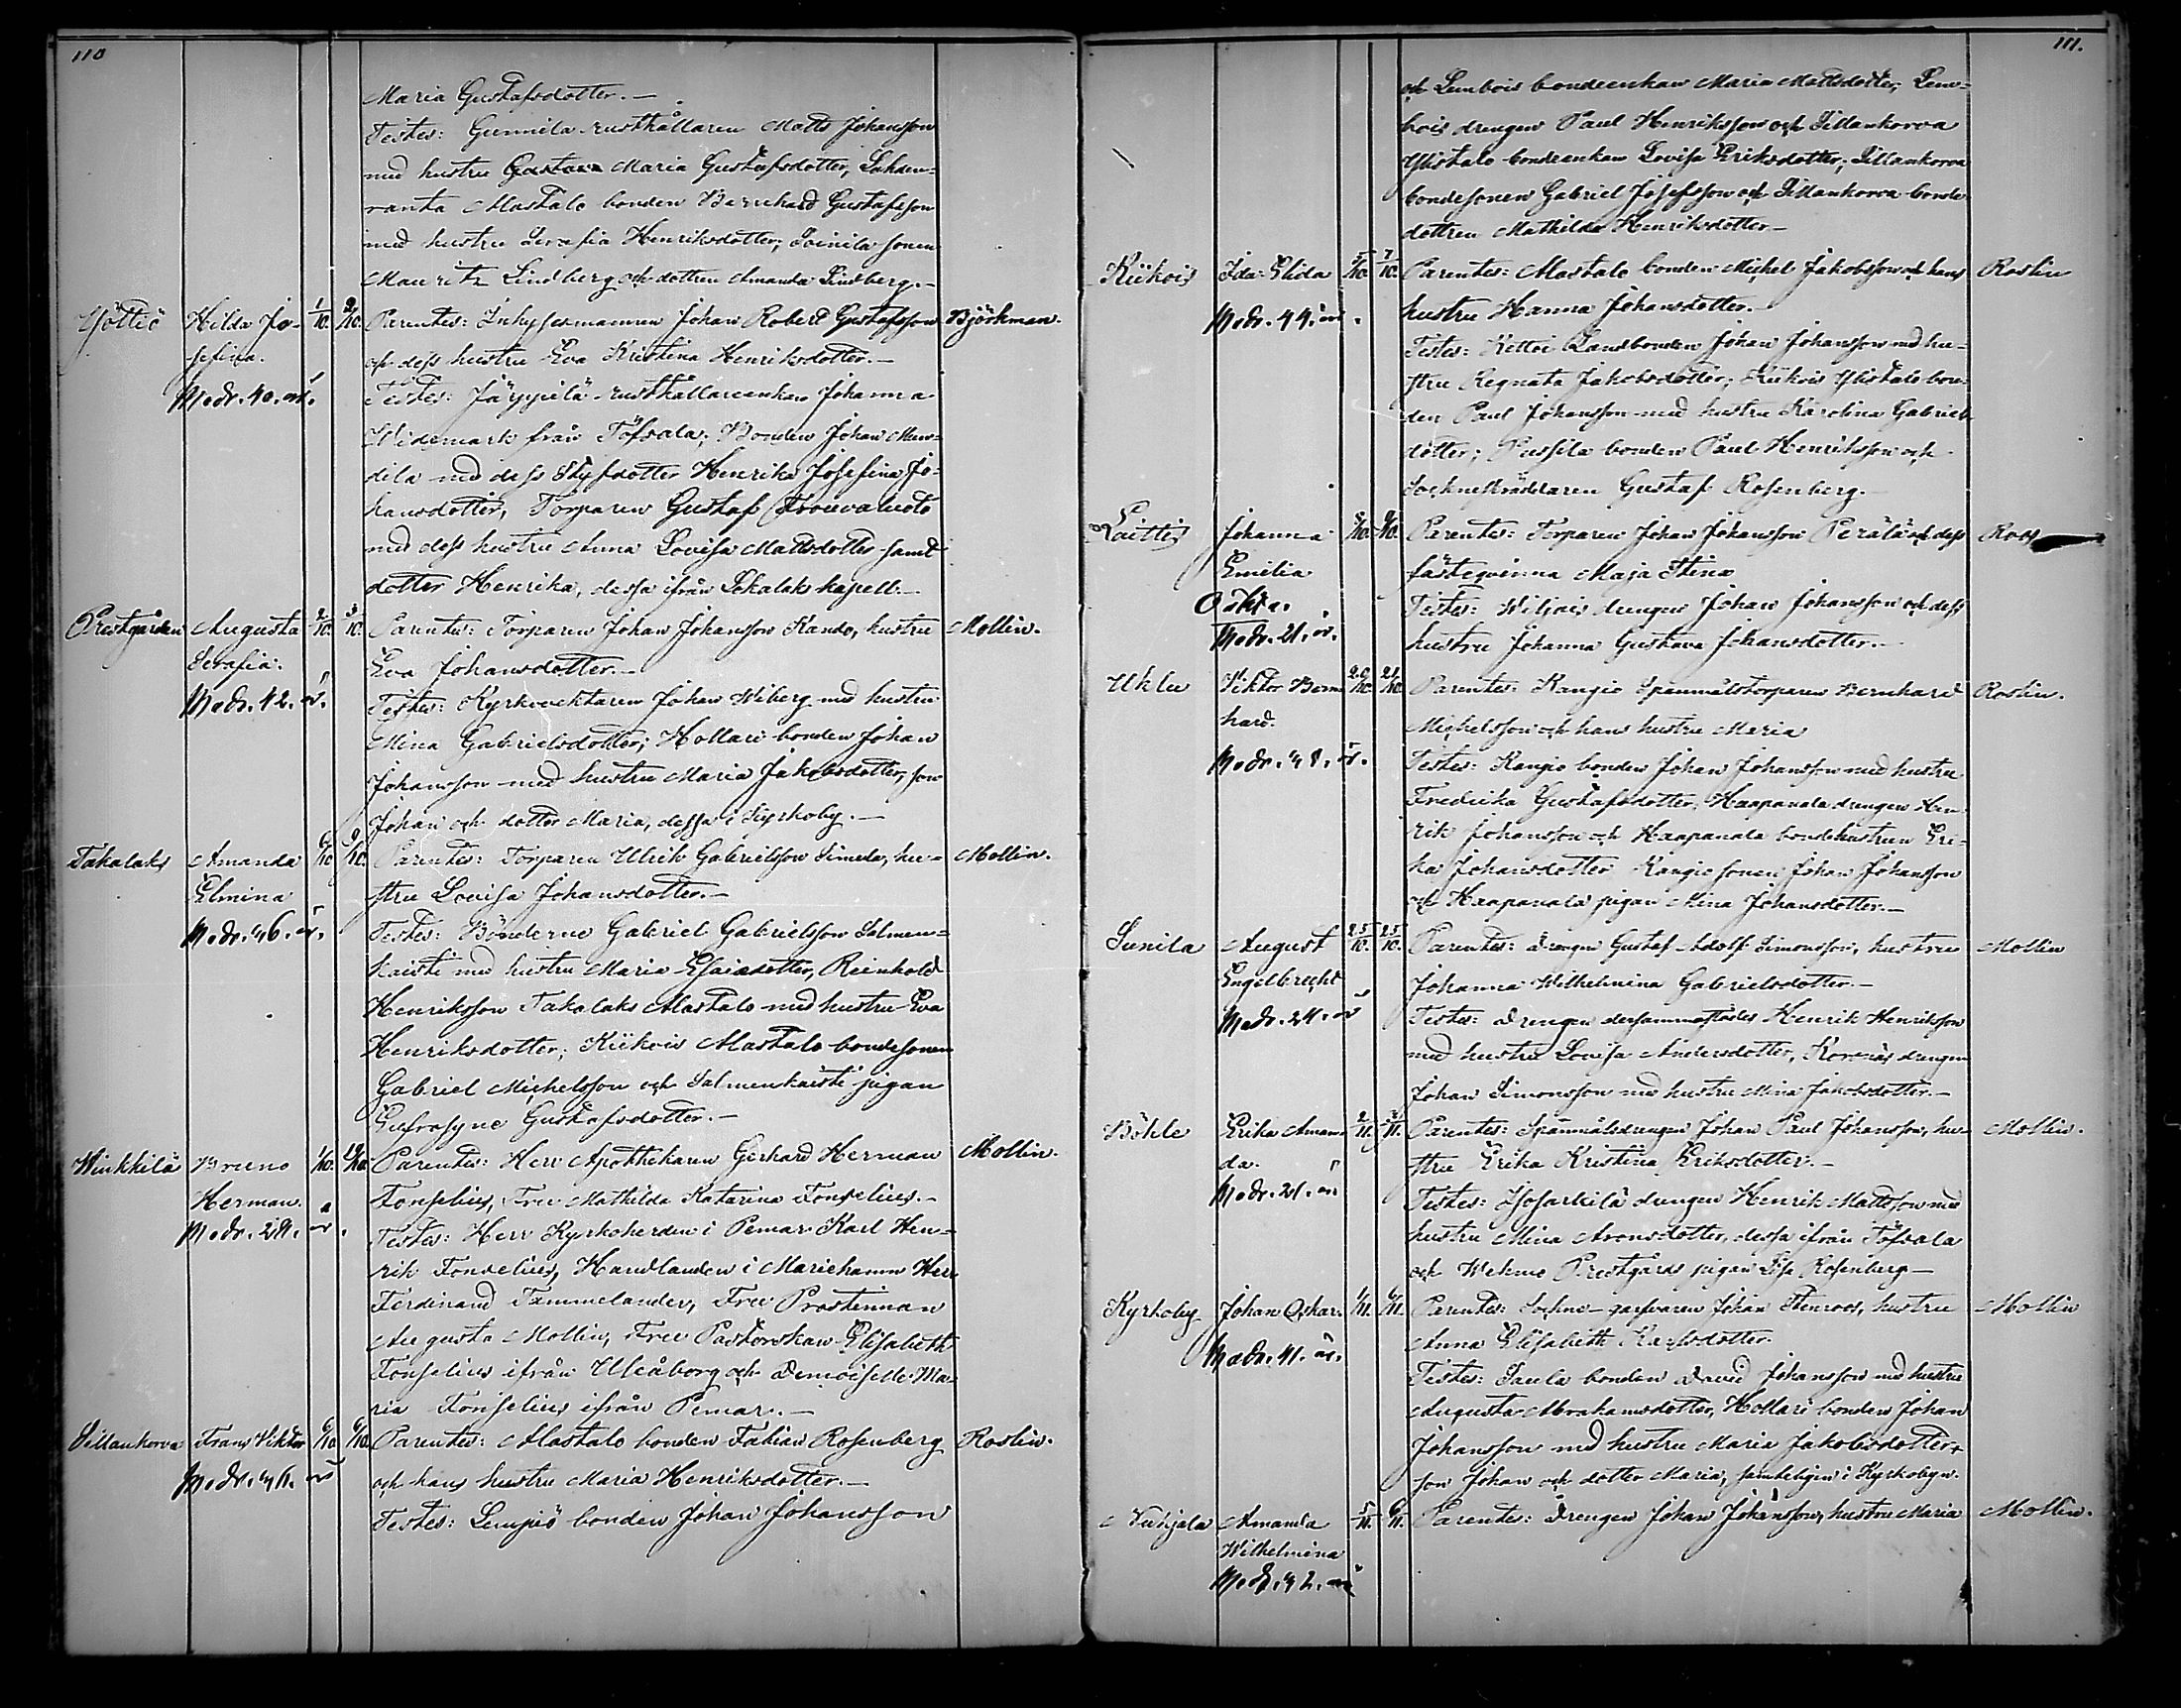 110
Maria Gustafsdotter.—
Testes: Gunnila rusthållaren Matts Johansson
med hustru Maria Gustafsdotter, Lahden-
ranta Alastalo bonden Bernhard Gustafsson
med hustru Serafia Henriksdotter; Soinila sonen
Mauritz Lindberg och dottren Amanda Lindberg.—
Hilda Jo- 1/10. 2/10. Parentes: Inhysesmannen Johan Robert Gustafsson Björkman.
sefina. och dess hustru Eva Kristina Henriksdotter.—
Modr. 40. år. Testes: Järppilä rusthållareenkan Johanna
Widemark från Töfsala; Bonden Johan
med dess Styfdotter Henrika Josefina Jo-
hansdotter, Torparen Gustaf
med dess hustru Anna Lovisa Mattsdotter samt
dotter Henrika, dessa ifrån Lokalaks kapell.—
Prestgården Augusta 2/10. 3/10. Parentes: Torparen Johan Johansson Kando, hustru Mollin.
Serafia. Eva Johansdotter.—
Modr. 42. år. Testes: Kyrkovacktaren Johan Wiberg med hustru
Mina Gabrielsdotter; Hollari bonden Johan
Johansson med hustru Maria Jakobsdotter, son
Johan och dotter Maria, dessa i Kyrkoby.—
Takalaks Amanda 6/10 9/10. Parentes: Torparen Ulrik Gabrielsson Simola, hu- Mollin.
Elmina stru Lovisa Johansdotter.—
Modr. 46. år. Testes: Bönderne Gabriel Gabrielsson Salmen-
kaisti med hustru Maria Esaiadotter, Reinhold
Henriksson Takalaks Alastalo med hustru Eva
Henriksdotter; Kiikois Alastalo bondesonen
Gabriel Michelsson och Salmenkaisti pigan
Eufrosyne Gustafsdotter.—
Winkkilä Bruno 1/10. Parentes: Herr Apothekaren Gerhard Herman Mollin.
Herman. Fonselius, Fru Mathilda Katarina Fonselius.—
Modr. 28. år. Testes: Herr Kyrkoherden i Pemar Karl Hen-
rik Fonselius, Handlanden i Mariehamn Herr
Ferdinand Tammelander, Fru Prostinnan
Augusta Mollin, Fru Pastorskan Elisabeth
Fonselius ifrån Uleåborg och Demoiselle Ma-
ria Fonselius ifrån Pemar.—
Sillankorva Frans Viktor 6/10. 6/10. Parentes: Alastalo bonden Fabian Rosenberg Roslin.
och hans hustru Maria Henriksdotter.—
Testes: Lempiö bonden Johan Johansson
111.
och Lembois bondeenkan Maria Mattsdotter, Lem-
bois drengen Paul Henriksson och Sillankorva
Ylistalo bondeenkan Lovisa Eriksdotter; Sillankorva
bondesonen Gabriel Josefsson och Sillankorva bonde
dottren Mathilda Henriksdotter—
Kiikois Ida Elida 5/10. 7/10. Parentes: Alastalo bonden Michel Jakobsson och hans Roslin
Modr. 44. år. hustru Hanna Johansdotter.—
Testes: Kettoi Landbonden Johan Johansson med hu-
stru Regnata Jakobsdotter; Kiikois Ylistalo bon-
den Paul Johansson med hustru Karolina Gabriels
dotter; Pussila bonden Paul Henriksson och
Sockneskräddaren Gustaf Rosenberg.—
Laittis Johanna 8/10. 9/10. Parentes: Torparen Johan Johansson Perälä och dess Roos
Emilia fästeqvinna Maja Stina
Oäkta. Testes: Wiljais drengen Johan Johansson och dess
Modr. 21. år. hustru Johanna Gustava Johansdotter.—
Uklu Viktor Bern- 20/10. 21/10. Parentes: Kangio Spanmålstorparen Bernhard Roslin.
hard. Michelsson och hans hustru Maria
Modr. 48. år. Testes: Kangio bonden Johan Johansson med hustru
Fredrika Gustafsdotter, Haapanala drengen Hen-
rik Johansson och Haapanala bondehustrun Eri-
ka Johansdotter Kangio sonen Johan Johansson
och Haapanala pigan Mina Johansdotter.—
Sunila August 25/10. 25/10. Parentes: Drengen Gustaf Adolf Simonsson, hustru Mollin
Engelbrecht Johanna Wilhelmina Gabrielsdotter.—
Modr. 24. år Testes: Drengen dersammastädes Henrik Henriksson
med hustru Lovisa Andersdotter, drengen
Johan Simonsson med hustru Mina Jakobsdotter.—
Böhle Erika Aman- 2/11. Parentes: Spanmålsdrengen Johan Paul Johansson, hu- Mollin.
da. stru Erika Kristina Eriksdotter.—
Modr. 21. år Testes: drengen Henrik Mattsson med
hustru Mina Aronsdotter, dessa ifrån Töfsala
och Wehmo Prestgårds pigan Lisa Rosenberg—
Kyrkoby Johan Oskar. 1/11. 6/11. Parentes: Sockne-garfvaren Johan Stenroos, hustru Mollin
Modr. 41. år. Anna Elisabeth Karlsdotter.
Testes: Saula bonden David Johansson med hustru
Augusta Abrahamsdotter, Hollari bonden Johan
Johansson med hustru Maria Jakobsdotter,
son Johan och dotter Maria, samteligen i Kyrkobyn.
Nukjala Amanda 5/11. 6/11. Parentes: Drengen Johan Johansson, hustru Maria Mollin.
Wilhelmina
Modr. 42. år